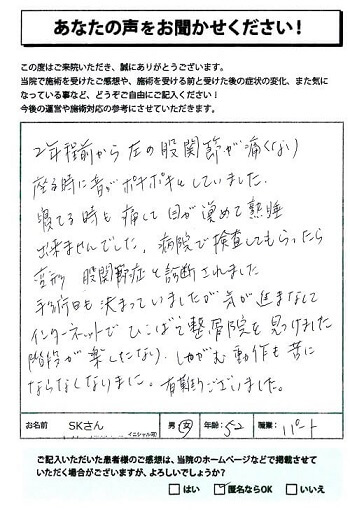 あなたの声をお聞かせください！
この度はご来院いただき、誠にありがとうございます。
当院で施術を受けたご感想や、施術を受ける前と受けた後の症状の変化、また気に
なっている事など、どうぞご自由にご記入ください！
今後の運営や施術対応の参考にさせていただきます。
2年程前から左の股関節が痛くなり
座る時に音がポキポキしていました。
寝てる時も痛くて目が覚めて熟睡
出来ませんでした。病院で検査してもらったら
変形股関節症と診断されました
手術日も決まっていましたが気が進まなくて
インターネットでひこばえ整骨院を見つけました
階段が楽になり、しゃがむ動作も苦に
ならなくなりました。有難うございました。
お名前 SKさん イニシャル可 男 女 年齢: 52 職業: パート
ご記入いただいた患者様のご感想は、当院のホームページなどで掲載させて
いただく場合がございますが、よろしいでしょうか？
はい 匿名ならOK いいえ